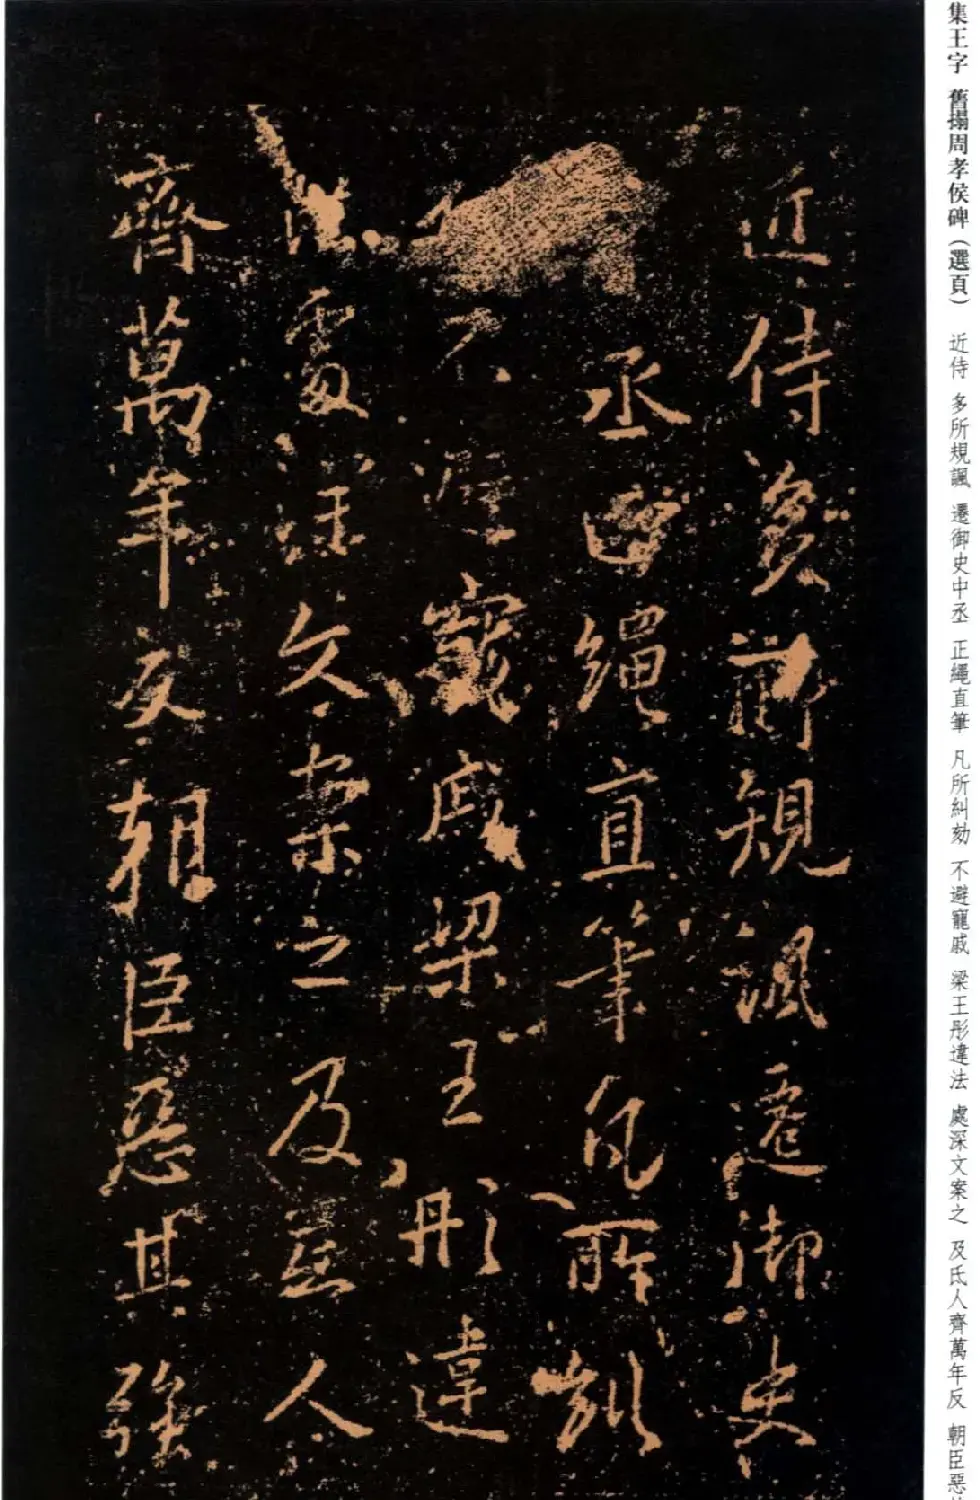 集王字 舊搨周孝侯碑(選頁) 近侍 多所規諷 遷御史中丞 正繩直筆 凡所糾劾 不避寵戚 梁王彤違法 處深文案之 及氐人齊萬年反 朝臣惡
近侍多所規諷遷御史
丞正繩直筆凡所糾
不避寵戚梁王彤違
法處深文案之及氐人
齊萬年反朝臣惡其強